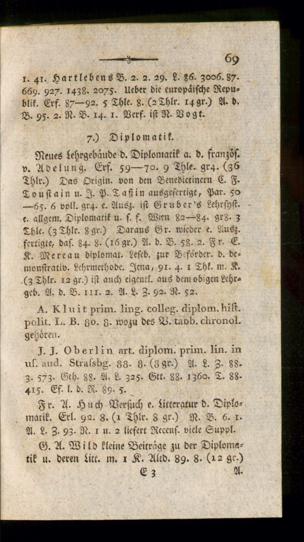 69
1. 41. Hartlebens B. 2. 2. 29. L. 86. 3006. 87.
669. 927. 1438. 2075. Ueber die europäische Repu-
blik. Erf. 87—92. 5 Thle. 8. (2 Thlr. 14 gr.) A. d.
B. 95. 2. N. B. 14. 1. Verf. ist N. Vogt.
7.) Diplomatik.
Neues Lehrgebäude d. Diplomatik a. d. französ.
v. Adelung. Erf. 59—70. 9 Thle. gr4. (36
Thlr.) Das Origin. von den Benedictinern C. F.
Toustain u. J. P. Tassin ausgefertigt, Par. 50
—65. 6 voll. gr4. e. Ausz. ist Gruber's Lehrsyst.
e. allgem. Diplomatik u. s. f. Wien 82—84. gr8. 3
Thle. (3 Thlr. 8 gr.) Daraus Gr. wieder e. Ausz.
fertigte, das. 84. 8. (16 gr.) A. d. B. 58. 2. Fr. E.
K. Mereau diplomat. Leseb. zur Beförder. d. de-
monstrativ. Lehrmethode. Jena, 91. 4. 1 Thl. m. K.
(3 Thlr. 12 gr.) ist auch eigentl. aus dem obigen Lehr-
geb. A. d. B. 111. 2. A. L. Z. 92. N. 52.
A. Kluit prim. ling. colleg. diplom. hist.
polit. L. B. 80. 8. wozu des V. tabb. chronol.
gehören.
J. J. Oberlin art. diplom. prim. lin. in
us. aud. Strasbg. 88. 8. (8 gr.) A. L. Z. 88.
3. 573. Gth. 88. A. L. 325. Gtt. 88. 1360. T. 88.
415. Ef. l. d. R. 89. 5.
Fr. A. Huch Versuch e. Litteratur d. Diplo-
matik. Erl. 92. 8. (1 Thlr. 8 gr.) N. B. 6. 1.
A. L. Z. 93. N. 1 u. 2 liefert Recens. viele Suppl.
G. A. Wild kleine Beiträge zu der Diploma-
tik u. deren Litt. m. 1 K. Altd. 89. 8. (12 gr.)
E 3 A.